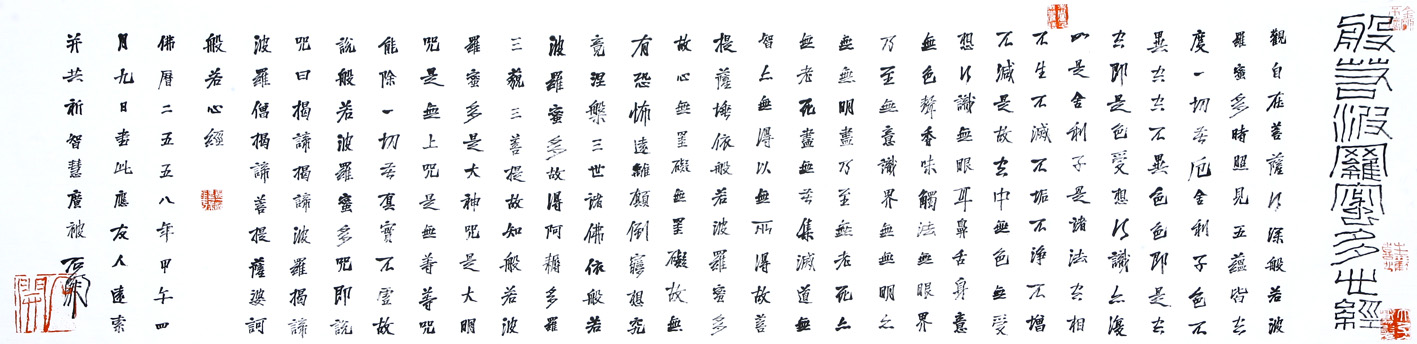 般若波羅蜜多心經
觀自在菩薩行深般若波
羅蜜多時照見五蘊皆空
度一切苦厄舍利子色不
異空空不異色色即是空
空即是色受想行識亦復
如是舍利子是諸法空相
不生不滅不垢不淨不增
不減是故空中無色無受
想行識無眼耳鼻舌身意
無色聲香味觸法無眼界
乃至無意識界無無明亦
無無明盡乃至無老死亦
無老死盡無苦集滅道無
智亦無得以無所得故菩
提薩埵依般若波羅蜜多
故心無罣礙無罣礙故無
有恐怖遠離顛倒夢想究
竟涅槃三世諸佛依般若
波羅蜜多故得阿耨多羅
三藐三菩提故知般若波
羅蜜多是大神咒是大明
咒是無上咒是無等等咒
能除一切苦真實不虛故
說般若波羅蜜多咒即說
咒曰揭諦揭諦波羅揭諦
波羅僧揭諦菩提薩婆訶
般若心經
佛曆二五五八年甲午四
月九日書此應友人遠索
并共祈智慧廣被 石開